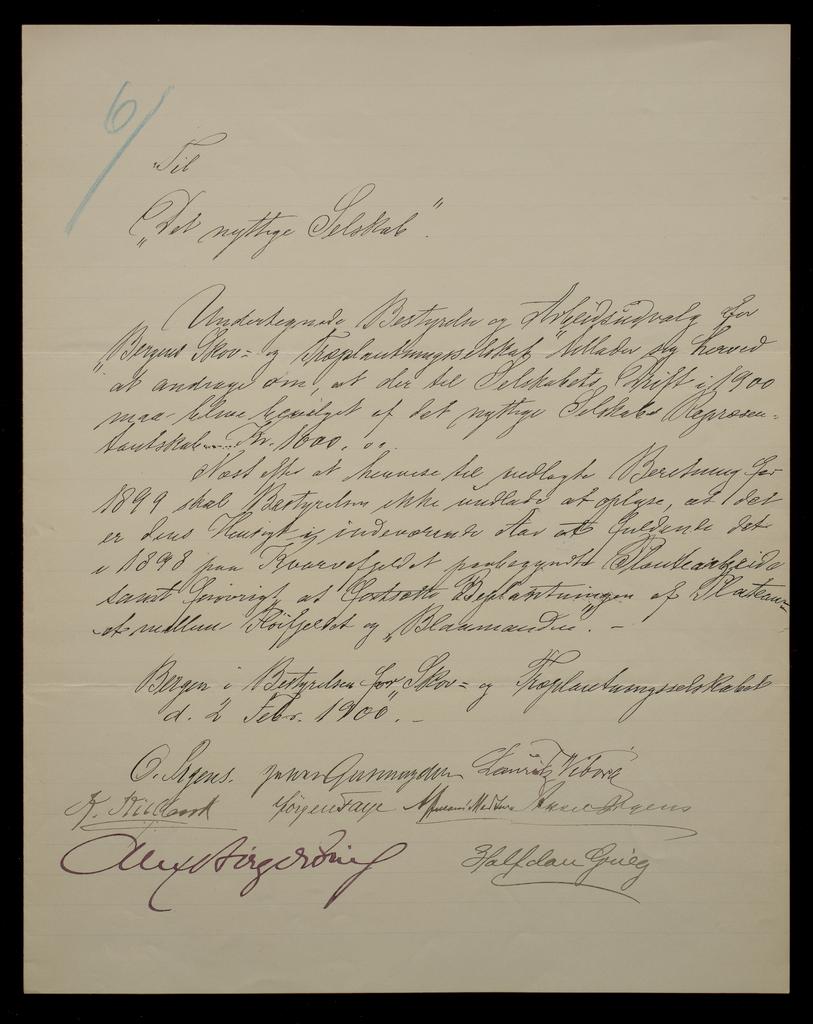 6/
Til
"Det nyttige Selskab".
Undertegnede Bestyrelse og Arbeidsudvalg for
"Bergens Skov- og Træplantningsselskab" tillader sig herved
at andrage om, at der til Selskabets Drift i 1900
maa blive bevilget af det nyttige Selskabs Repræsen-
tantskab Kr. 1000,00.
Næst efter at henvise til vedlagte Beretning for
1899 skal Bestyrelsen ikke undlade at oplyse, at det
er dens Hensigt i indeværende Aar at fuldende det
i 1898 paa Kvarvefjeldet paabegyndte Plantearbeide
samt forøvrigt at fortsætte Beplantningen af Plateau-
et mellem Fløifjeldet og "Blaamanden". -
Bergen i Bestyrelsen for "Skov- og Træplantningsselskabet
d. 2 Febr. 1900". -
C. Irgens. Lauritz Vibork
Jørgen Faye
Halfdan Grieg